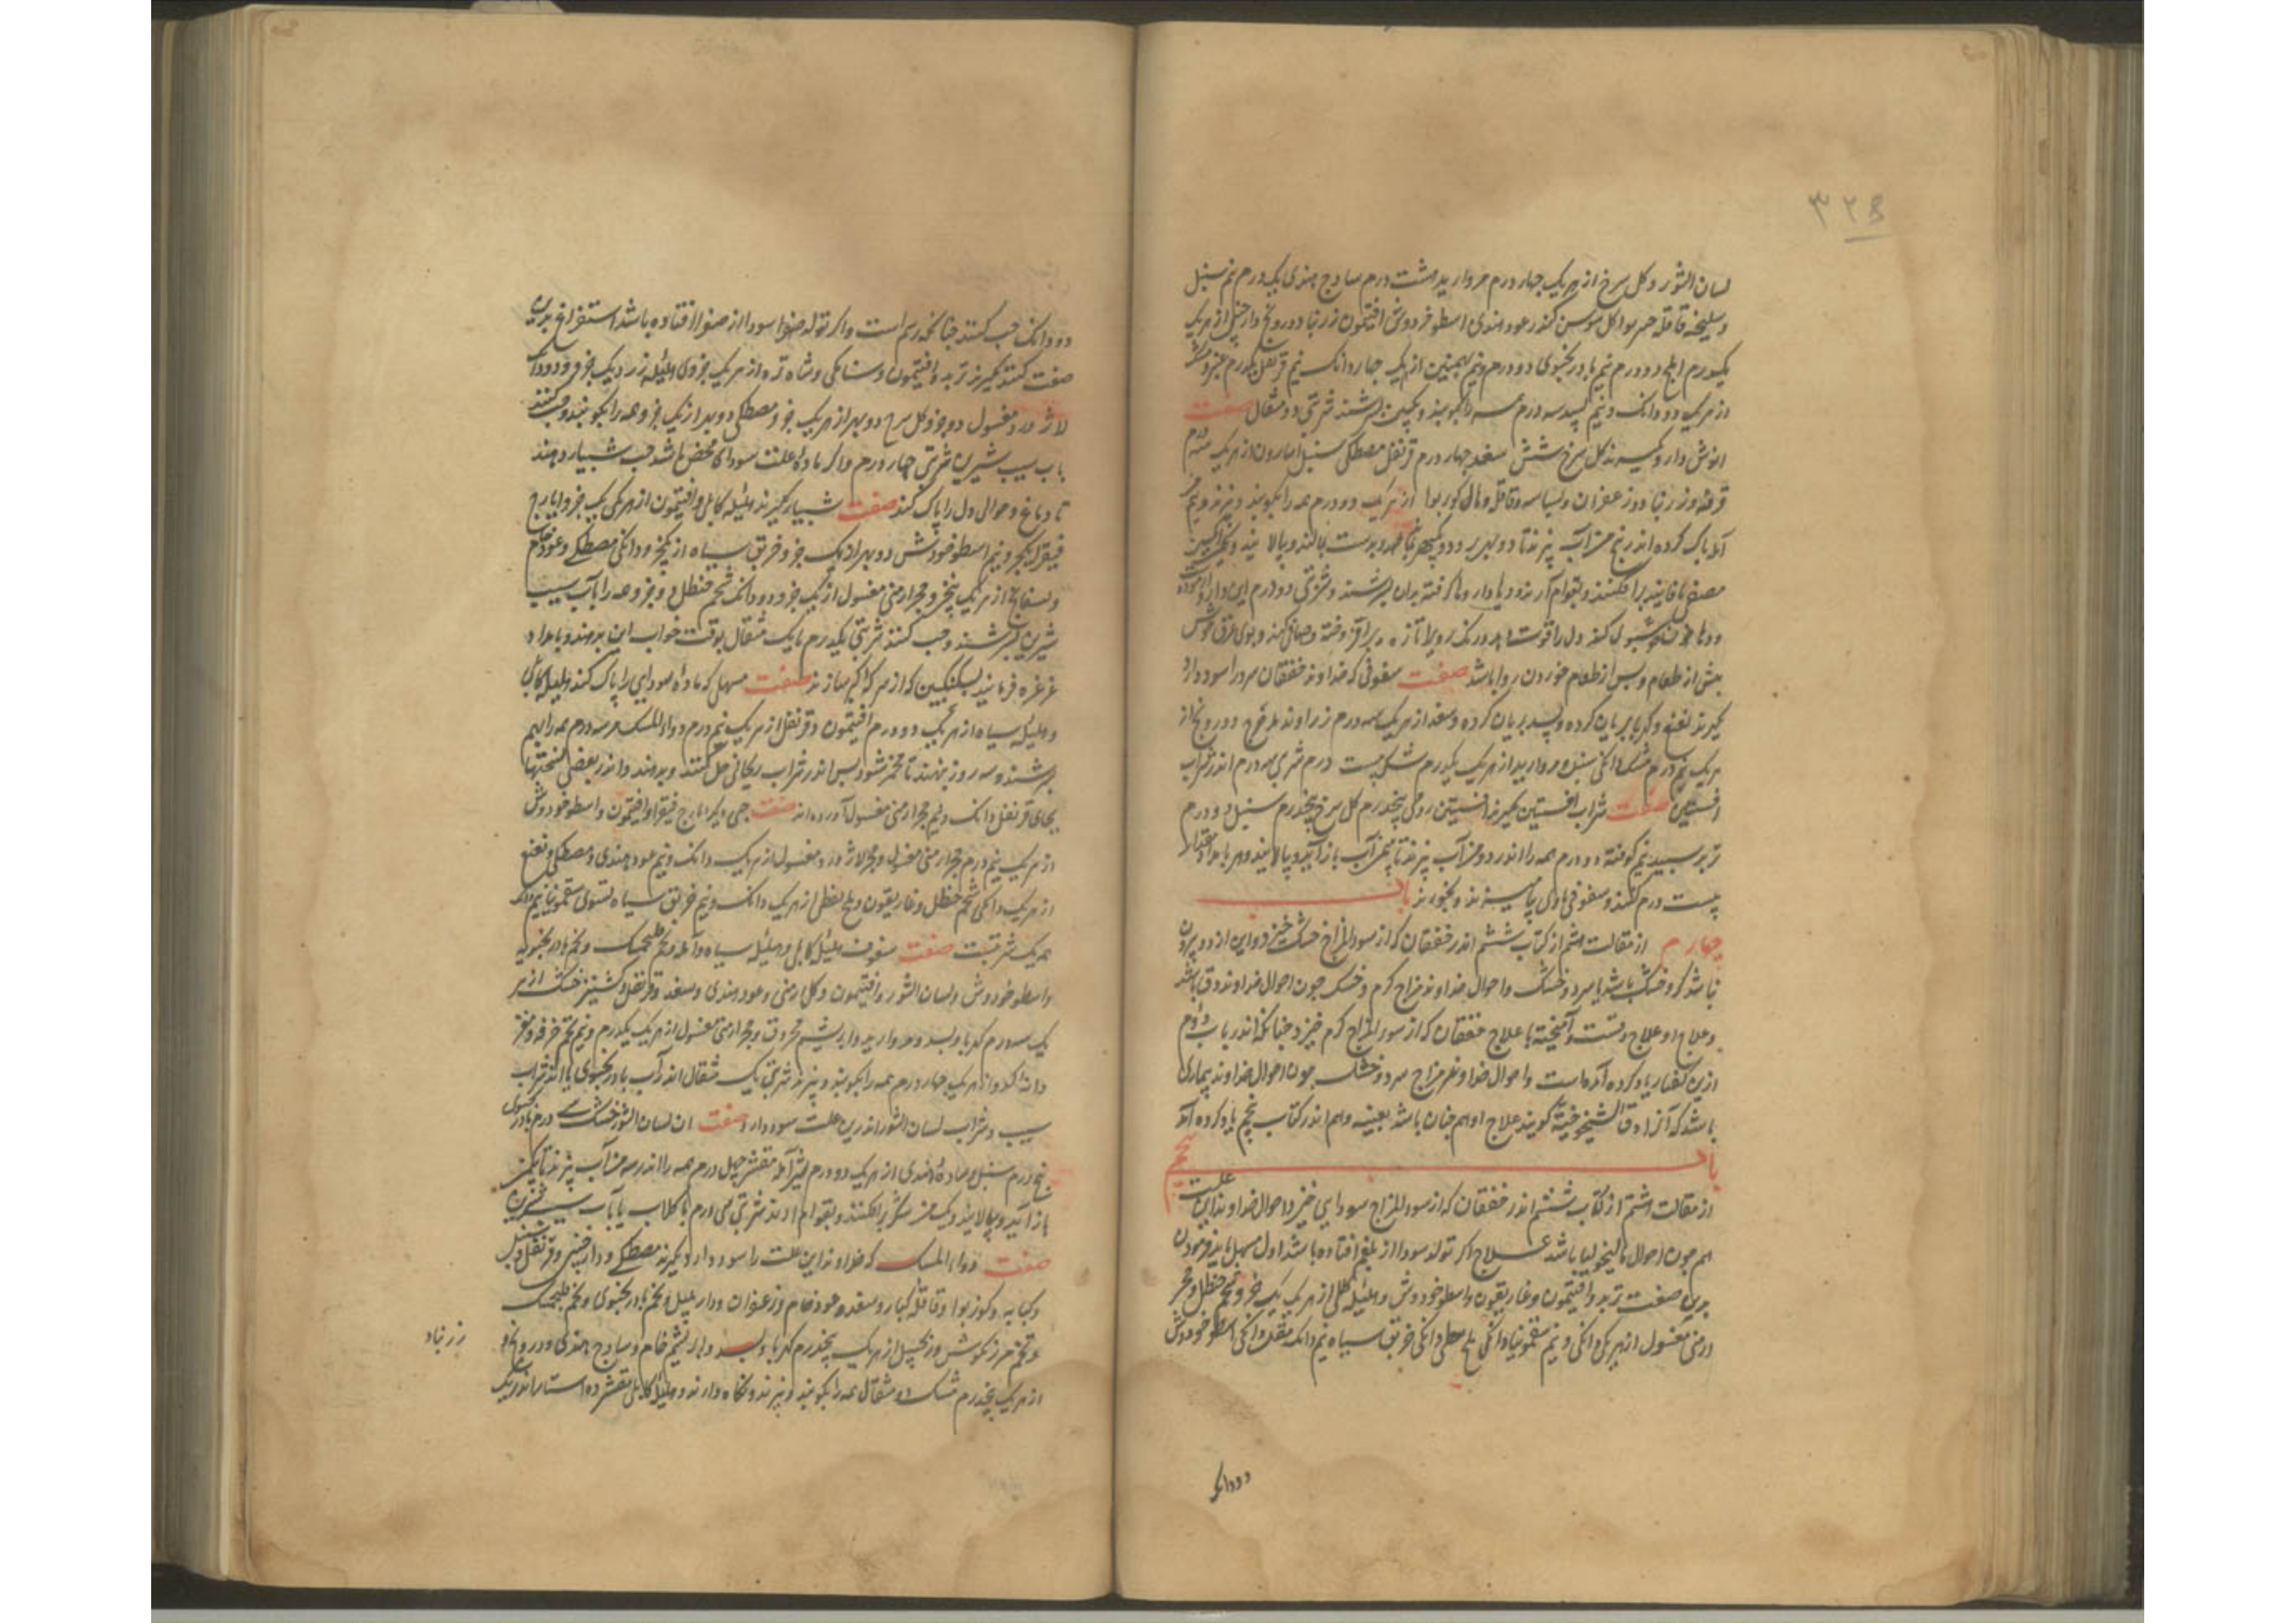 ۳۲۵
لسان الثور و کل سرخ از هر یک چهار درم مروارید هشت درم سادج هندی یک درم نیم سنبل
و سلیخه قاقله کل سوسن کندر عود هندی اسطوخودوش افتیمون زرنباد درونج دارچینی از هر یک
یکدرم املج دو درم نیم بادرنجبوی دو درم و نیم بهمنین از یک چهار دانک نیم قرنفل یکدرم عنبر و مشک
از هر یک دو دانک و نیم بسد سه درم همه را بکوبند و بکبین بسرشند شربتی دو مثقال صفت
انوش دارو کیرند کل سرخ شش سعد چهار درم قرنفل مصطکی سنبل اسارون از هر یک سه درم
قرفه و زرنباد و زعفران و بسباسه و قاقله و مال کوزبوا از هر یک دو درم همه را بکوبند و بپزند و نیم من
آمله پاک کرده اندر پنج من آب بپزند تا دو بهر برود و یکبهر بماند و بدست بمالند و بپالایند و یکمن انکبین
مصفی یا فانید برافکنند و بقوام آرند و داروها کوفته بدان بسرشند و شربتی دو درم این دارو
دهان خوشبوی کند دل را قوت دهد رنک روی را تازه و برافروخته و صافی کند و بوی عرق خوش
پیش از طعام و پس از طعام خوردن روا باشد صفت سفوفی که خداوند خفقان سرد را سود دارد
کیرند نعنع و کهربا بریان کرده و بسد بریان کرده و سعد از هر یک سه درم زراوند مدحرج و درونج از
هر یک نیم درم مشک دانکی سنبل و مروارید از هر یک یکدرم شکر بیست درم شربتی سه درم اندر شراب
افسنتین صفت شراب افسنتین کیرند افسنتین رومی پنجدرم کل سرخ پنجدرم سنبل دو درم
تربد سپید نیم کوفته دو درم همه را اندر دو من آب بپزند تا بنیم من آب باز آید و بپالایند و هر بامداد مقدار
بیست درم کنند و سفوفی بدین بیامیزند و بخورند باب
چهارم از مقالت هشتم از کتاب ششم اندر خفقان که از سوء المزاج خشک خیزد و این از دو بیرون
نباشد کرم و خشک باشد یا سرد و خشک و احوال خداوند مزاج کرم و خشک چون احوال خداوند دق باشد
و علاج او علاج دقست آمیخته با علاج خفقان که از سوء المزاج کرم خیزد چنانکه اندر باب دوم
ازین کفتار یاد کرده آمده است و احوال خداوند مزاج سرد و خشک چون احوال خداوند بیماری
باشد که آنرا دق الشیخوخیة کویند علاج او هم چنان باشد بعینه و هم اندر کتاب پنجم یاد کرده آمد
باب پنجم
از مقالت هشتم از کتاب ششم اندر خفقان که از سوء المزاج سودایی خیزد احوال خداوند این علت
هم چون احوال مالیخولیا باشد علاج اکر تولد سودا از بلغم افتاده باشد اول مسهل باید فرمودن
برین صفت تربد و افتیمون و غاریقون و اسطوخودوش و هلیله کابلی از هر یک یک جزو شحم حنظل و حجر
ارمنی مغسول از هر یکی دانکی و نیم سقمونیا دانکی ملح نفطی دانکی خربق سیاه نیم دانک مقل دانکی اسطوخودوش
دو دانک
دو دانک حب کنند چنانکه رسم است و اکر تولد سودا از صفرا افتاده باشد استفراغ برین
صفت کنند کیرند تربد و افتیمون و سنا مکی و شاه تره از هر یک جزوی هلیله زرد یک جزو و دو دانک
لاژورد مغسول دو جزو کل سرخ دو بهر از هر یک جزو مصطکی دو بهر از یک جزو همه را بکوبند و حب کنند
باب سیب شیرین شربتی چهار درم و اکر ماده علت سودای محض باشد حب شبیار دهند
تا دماغ و حوالی دل را پاک کند صفت شبیار کیرند هلیله کابلی و افتیمون از هر یکی یک جزو ایارج
فیقرا یکجزو نیم اسطوخودوش دو بهر از یک جزو خربق سیاه از یکجزو دانکی مصطکی و عود خام
و بسفایج از هر یک پنجزو حجر ارمنی مغسول از یک جزو دو دانک شحم حنظل جزو همه را بآب سیب
شیرین بسرشند و حب کنند شربتی یکدرم تا یک مثقال بوقت خواب این بدهند و بامداد
غرغره فرمایند بسکنکبین که از سرکه کبر سازند صفت مسهل که ماده سودایی را پاک کند هلیله کابلی
و هلیله سیاه از هر یک دو درم افتیمون و قرنفل از هر یک نیم درم دواء المسک سه درم همه را بهم
بسرشند و سه روز بنهند تا مخمر شود پس اندر شراب ریحانی حل کنند و بدهند و اندر بعضی نسختها
بجای قرنفل دانک و نیم حجر ارمنی مغسول آورده اند صفت حبی دیکر ایارج فیقرا و افتیمون و اسطوخودوش
از هر یک نیم درم حجر ارمنی مغسول و حجر لاژورد مغسول از هر یک دانک و نیم عود هندی و مصطکی و نعنع
از هر یک دانکی شحم حنظل و غاریقون و ملح نفطی از هر یک دانک و نیم خربق سیاه تسوی سقمونیا نیم دانک
همه یک شربتست صفت سفوف هلیله کابلی و هلیله سیاه و آمله و تخم فلنجمشک و تخم بادرنجبویه
و اسطوخودوش و لسان الثور و افتیمون و کل ارمنی و عود هندی و سعد و قرنفل و کشنیز خشک از هر
یک سه درم کهربا و بسد و مروارید و ابریشم محروق و حجر ارمنی مغسول از هر یک یکدرم و نیم تخم خرفه و مغز
دانه کدو از هر یک چهار درم همه را بکوبند و بپزند شربتی یک مثقال اندر آب بادرنجبوی یا اندر شراب
سیب و شراب لسان الثور اندرین علت سود دارد صفت آن لسان الثور خشک سی درم بادرنجبوی
پنج درم سنبل و ساذج هندی از هر یک دو درم شیر آمله مقشر چهل درم همه را اندر سه من آب بپزند تا یکمن
باز آید و بپالایند و یک من شکر برافکنند و بقوام آرند شربتی سی درم با کلاب یا بآب سیب شیرین
صفت دواء المسک که خداوند این علت را سود دارد کیرند مصطکی و دارچینی و قرنفل و سنبل
و کبابه و کوزبوا و قاقله کبار و سعد و عود خام و زعفران و دار پلپل و تخم بادرنجبوی و تخم فلنجمشک
و تخم مرزنکوش و زنجبیل از هر یک پنجدرم کهربا و بسد و ابریشم خام و سادج هندی و درونج و
زرنباد
از هر یک پنجدرم مشک دو مثقال همه را بکوبند و بپزند و نکاه دارند و هلیله کابلی مقشر ده استار اندر یک